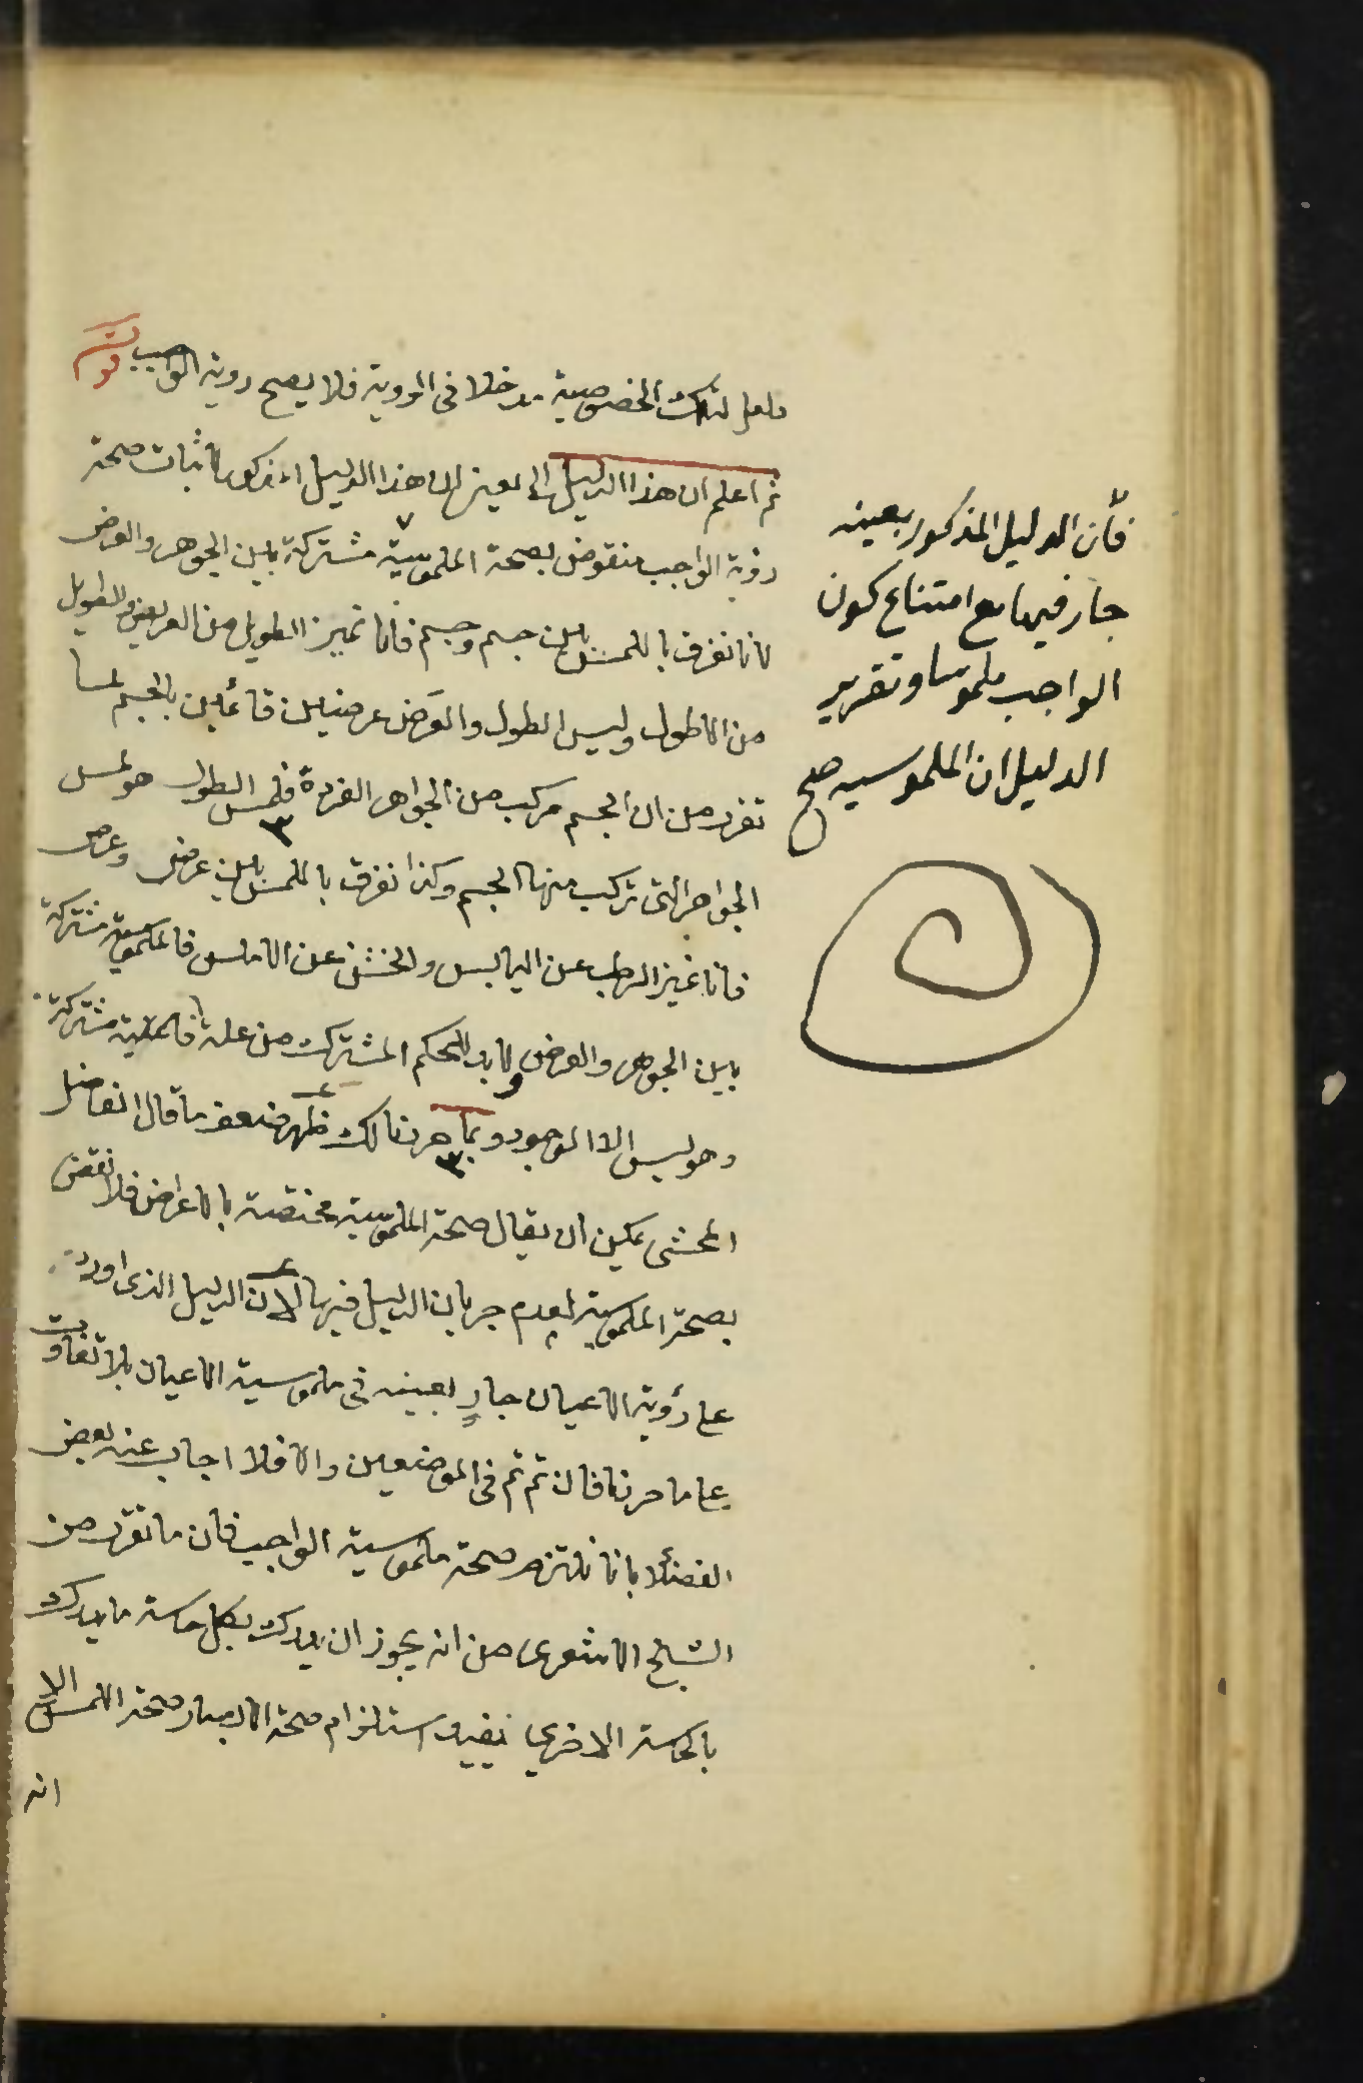 ولعل لتلك الخصوصية مدخلا فى الروية فلا يصح روية الواجب قوله
ثم اعلم ان هذا الدليل الى يعينى ان هذا الدليل المذكور لاثبات صحة
رؤية الواجب منقوض بصحة الملموسية مشتركة بين الجوهر والعرض
لانا نفرق باللمس بين جسم وجسم فانا نميز الطويل من العريض والطويل
من الاطول وليس الطول والعرض عرضين قائمين بالجسم لما
تقرر من ان الجسم مركب من الجواهر الفردة فلمس الطول هو لمس
الجواهر التى تركب منها الجسم وكذا نفرق باللمس بين عرض وعرض
فانا نميز الرطب عن اليابس والخشن عن الاملس فالملموسية مشتركة
بين الجوهر والعرض ولا بد للحكم المشترك من علة مشتركة
وهو ليس الا الوجود وبما حررنا لك ظهر ضعف ما قال الفاضل
المحشى يمكن ان يقال صحة الملموسية مختصة بالاعراض فلا نقض
بصحة الملموسية لعدم جريان الدليل فيها لان الدليل الذى اورد
على رؤية الاعيان جارٍ بعينه فى ملموسية الاعيان بلا تفاوت
على ما حررنا فان تم تم فى الموضعين والا فلا اجاب عنه بعض
الفضلا بانا نلتزم صحة ملموسية الواجب فان ما تقرر من
الشيخ الاشعرى من انه يجوز ان يدرك بكل حاسة ما يدرك
بالحاسة الاخرى يفيد استلزام صحة الابصار صحة اللمس الا
انه
فأن الدليل المذكور بعينه
جار فيها مع امتناع كون
الواجب ملموسا وتقرير
الدليل ان الملموسيه صح